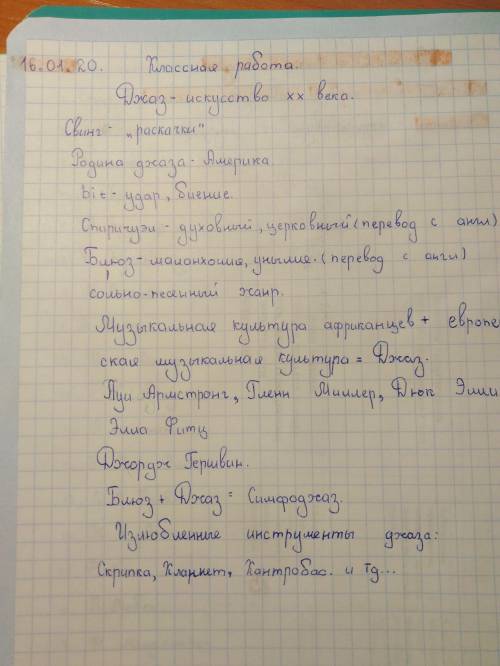 16.01.20. Классная работа.
Джаз - искусство xx века.
Свинг - „раскачки"
Родина джаза - Америка
bit - удар, биение.
Спиричуэл - духовный, церковный (перевод с англ)
Блюз - маланхолия, уныние. (перевод с англ)
сольно-песенный жанр.
Музыкальная культура африканцев + европе
ская музыкальная культура = Джаз.
Луи Армстронг, Гленн Миллер, Дюк Элли
Элла Фитц
Джордж Гершвин.
Блюз + Джаз = Симфоджаз.
Излюбленные инструменты джаза:
Скрипка, Кларнет, Кантробас. и тд...